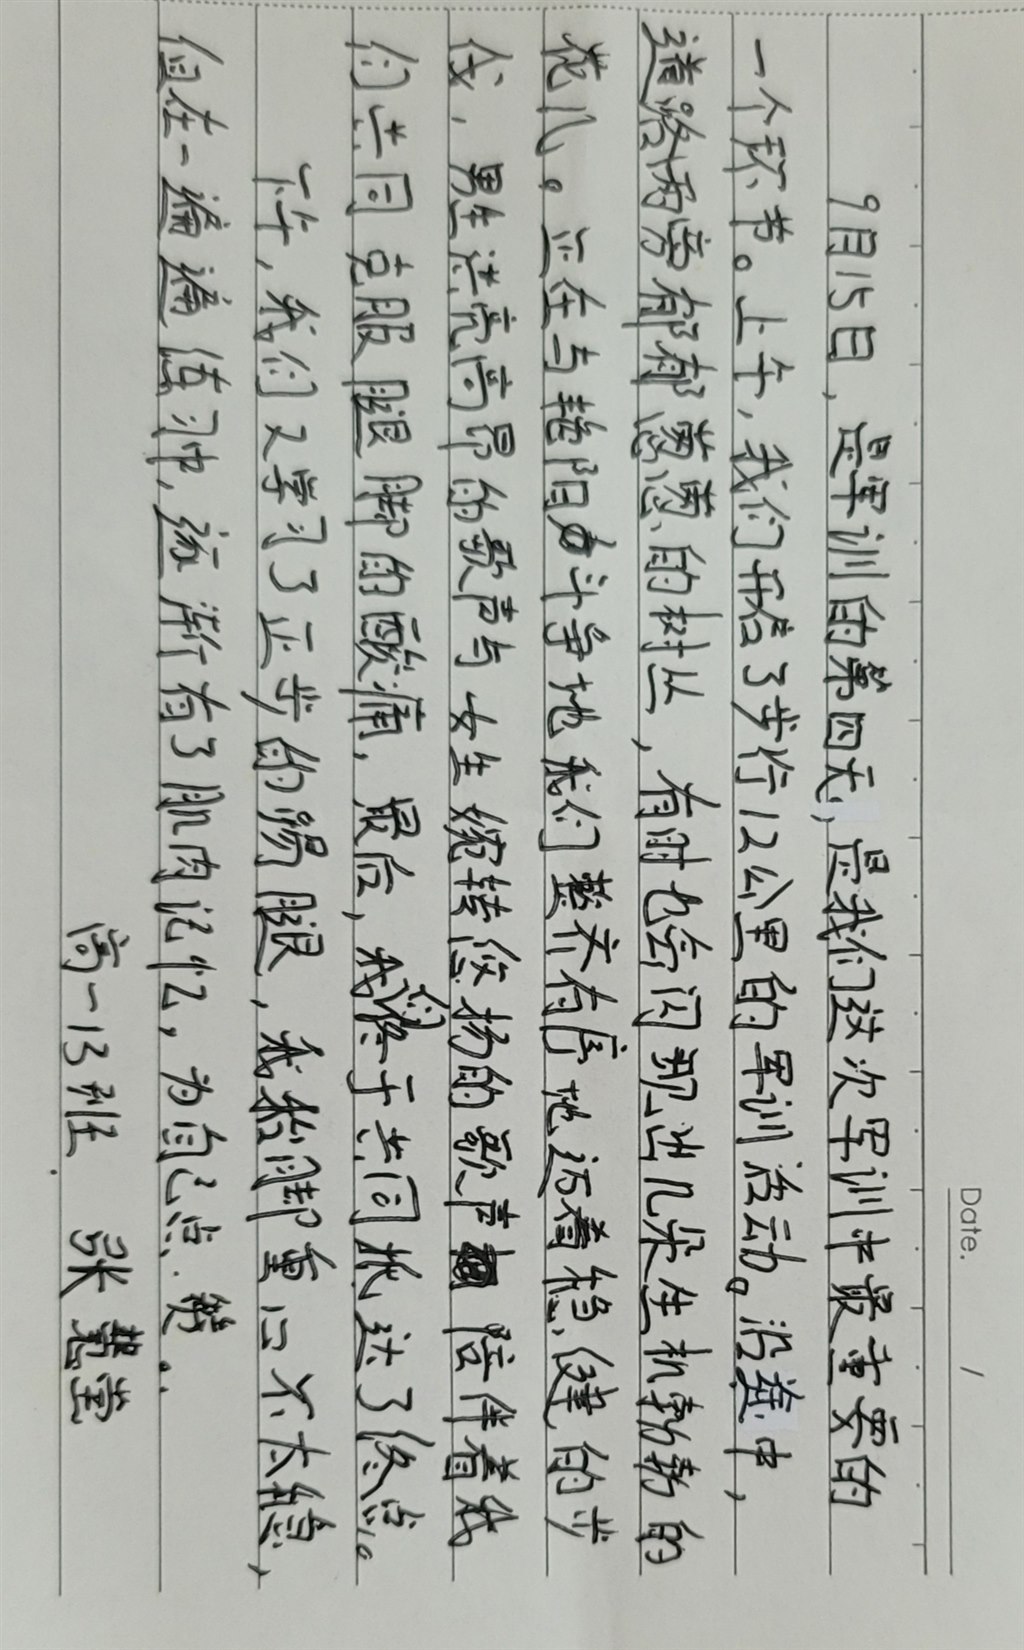 Date. /
9月15日，是军训的第四天，是我们这次军训中最重要的
一个环节。上午，我们开启了步行12公里的军训活动。沿途中，
道路两旁有郁郁葱葱的树丛，有时也会闪现出几朵生机勃勃的
花儿。正在与艳阳斗争地我们整齐有序地迈着稳健的步
伐，男生洪亮高昂的歌声与女生婉转悠扬的歌声陪伴着我
们共同克服腿脚的酸痛，最后，我们终于共同抵达了终点。
下午，我们又学习了正步的踢腿，我抬脚重心不太稳，
但在一遍遍练习中，逐渐有了肌肉记忆，为自己点赞。
高一13班 张慧堂